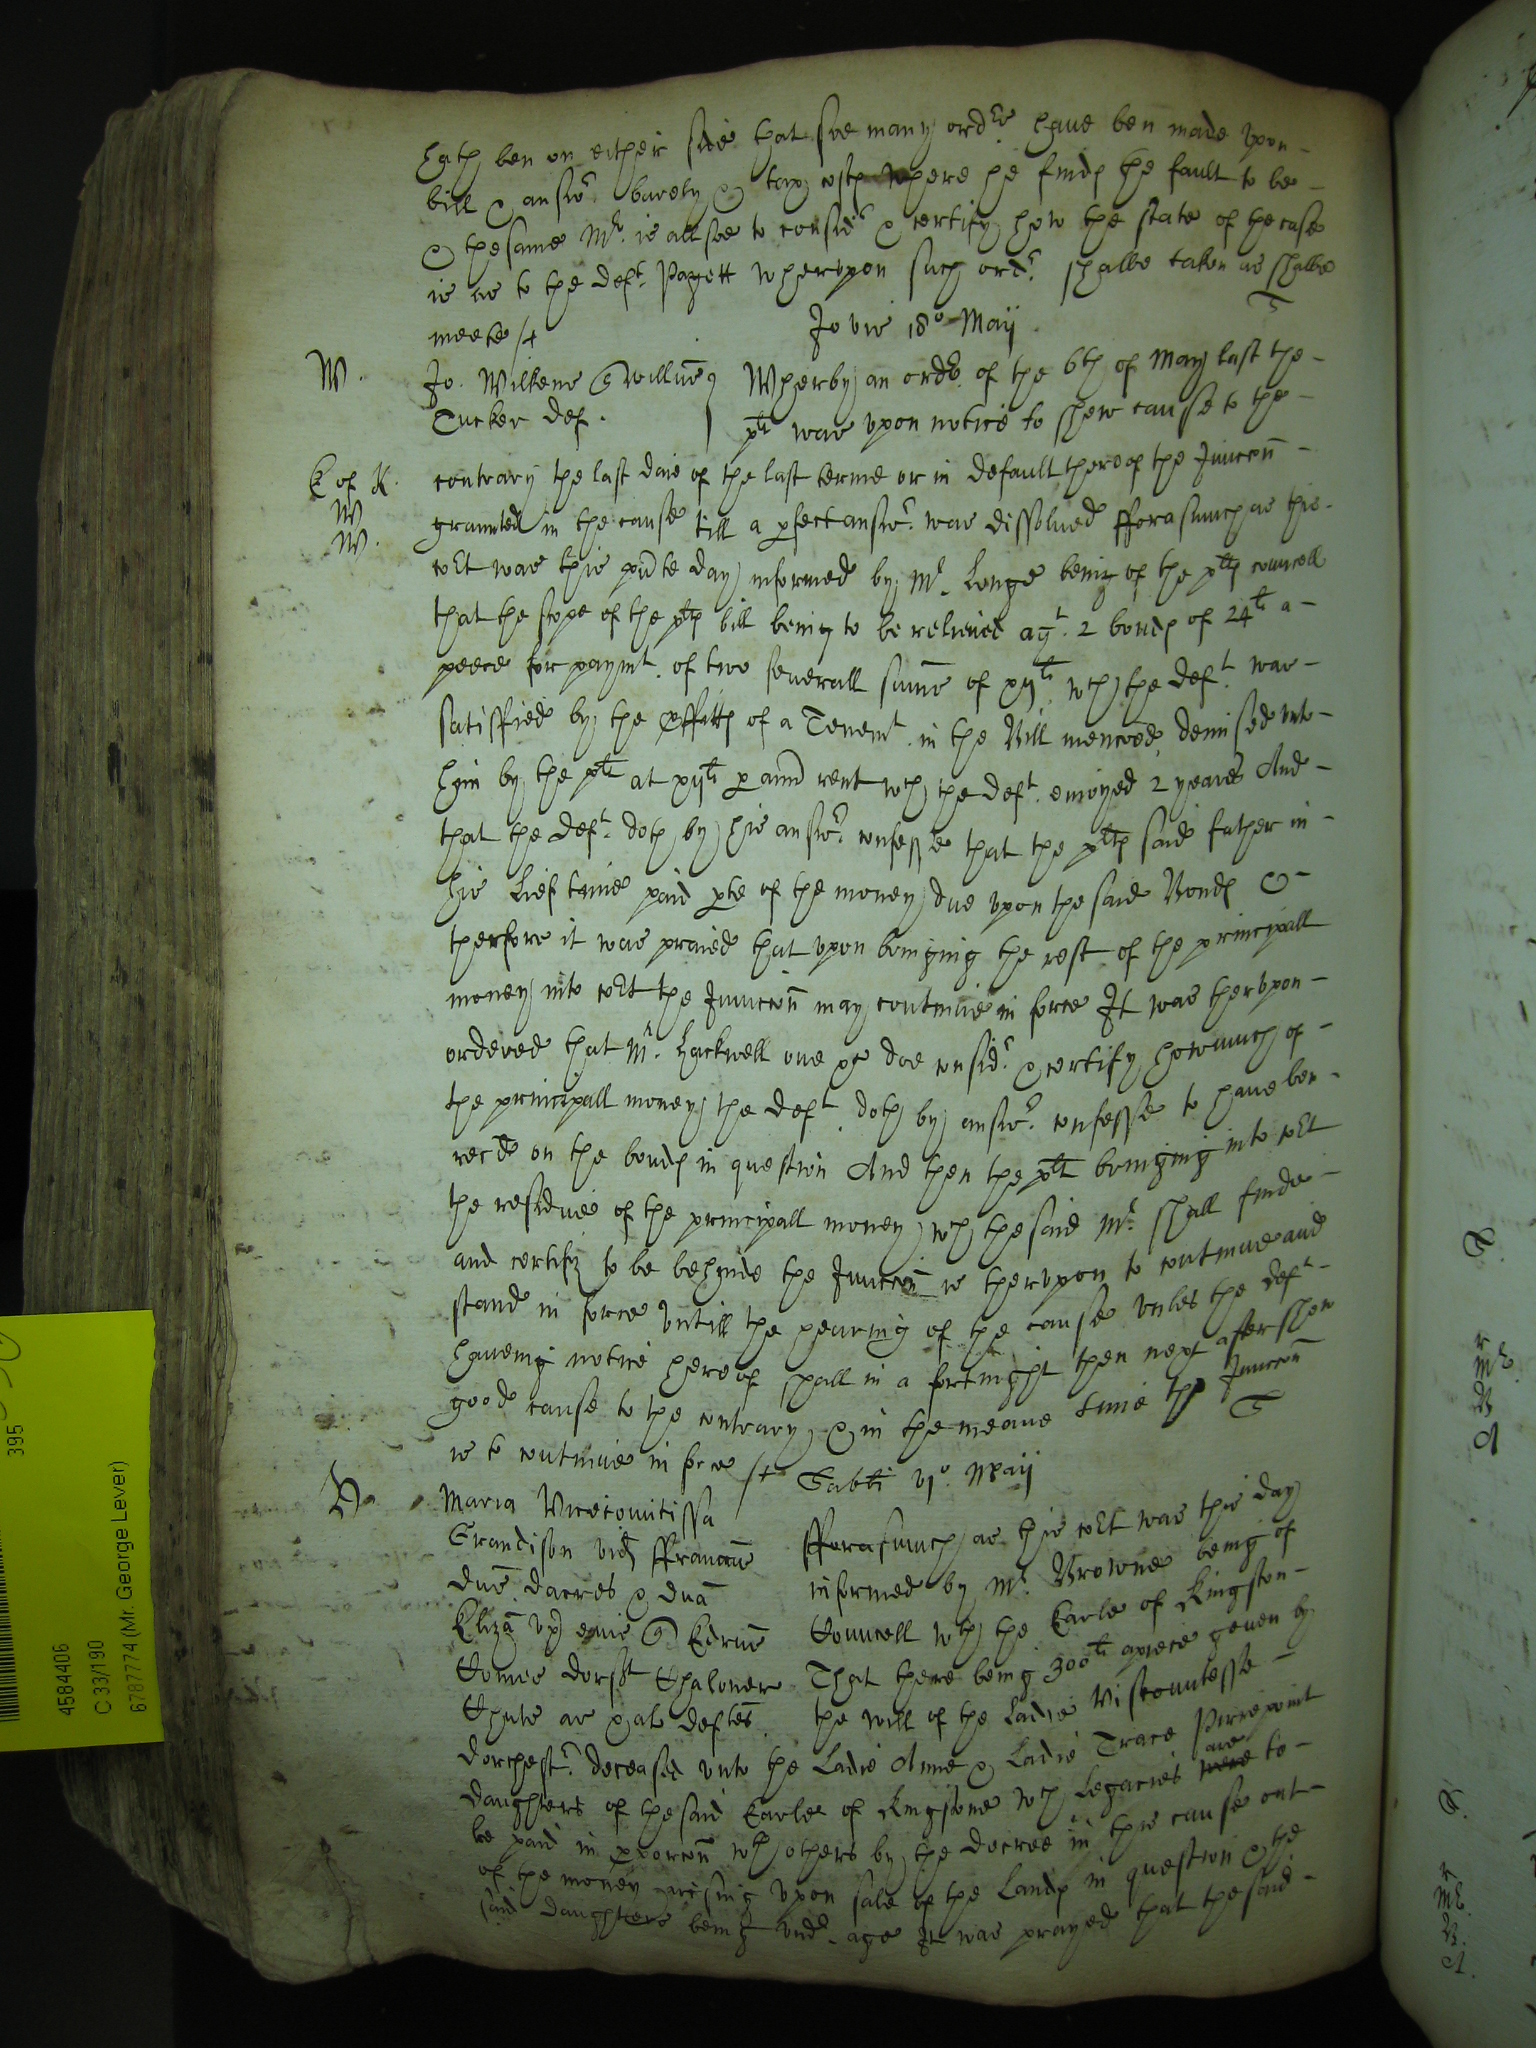 hath ben on either side that soe many ordrs haue ben made vpon
bill & answr barely & tax costs where he finds the fault to be
& the same Mr. is allsoe to considr & certify how the state of the case
is as to the deft. Pagett whervpon such ordr. shalbe taken as shalbe
meete /
Jovis 18o Maij
W.
Jo. Wilkens
Tucker def.
Wherby an order of the 6th of May last the
plt was vpon notice to shew causse to the
E of K.
W
W.
contrary the last daie of the last terme or in default thereof the Iniuccon
graunted in the cause till a pfect answr. was dissolued fforasmuch as this
cort was this pnte day informed by Mr. Longe being of the plts councell
that the scope of the plts bill being to be relieued agt. 2 bonds of 24li a
peece for paymt. of two seuerall sumes of xijli wch the deft. was
satisfied by the pffitts of a Tenemt. in the Bill menconed demised vnto
him by the plt at xijli p annu rent wch the deft. enioyed 2 yeares And
that the deft. doth by his answr. confesse that the plts said father in
his lief time paid pte of the money due vpon the said Bonds &
therfore it was praied that vpon bringing the rest of the principall
money into cort the Iniuccon may continue in force It was thervpon
ordered that Mr. Hackwell one &c doe considr & certify howmuch of
the principall money the deft. doth by answr. confesse to haue ben
recd on the bonds in question And then the plt bringing into cort
the residue of the principall money wch the said Mr. shall finde
and certify to be behinde the Iniuccon is thervpon to continue and
stand in force vntill the hearing of the cause vnles the deft.
haueing notice hereof shall in a fortnight then next after shew
good cause to the contrary & in the meane time the Iniuccon
is to continue in force /
Sabti Maij
Maria Vicecomitissa
Grandison vid
dacres & dna
Eliza
Chaloner
Chute ar & al deftes.
fforasmuch as this cort was this day
informed by Mr. Browne being of
Councell wth the Earle of Kingston
That there being 300li apiece geuen by
the will of the Ladie Viscountesse
dorchestr. deceased vnto the Ladie Anne & Ladie Grace Pierrepoint
daughters of the said Earle of Kingstone wch Legacies are to
be paid in wth others by the decree in this cause out
of the money arising vpon sale of the Lands in question & the
said daughters being vndr. age It was prayed that the said
395
4584406
C 33/190
6787774 (Mr. George Lever)